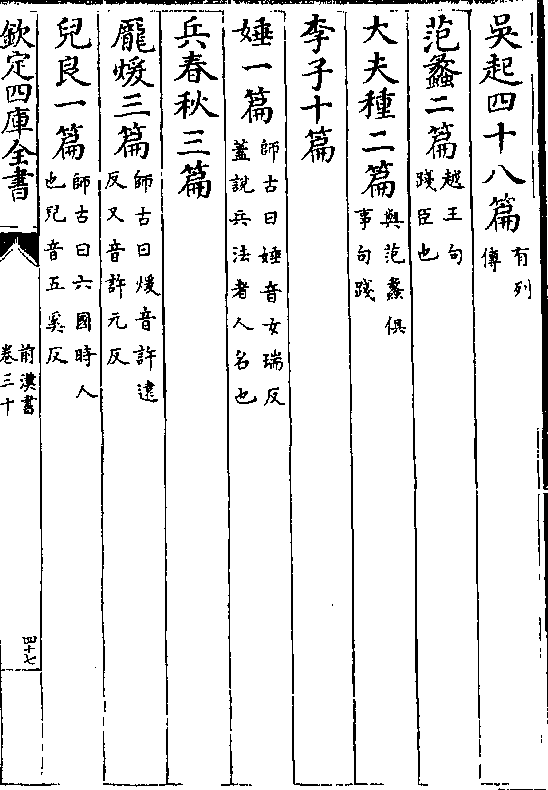 吳起四十八篇有列傳
范蠡二篇越王句踐臣也
大夫種二篇與范蠡俱事句踐
李子十篇
娷一篇師古曰娷音女瑞反蓋說兵法者人名也
兵春秋三篇
龐煖三篇師古曰煖音許遠反又音許元反
兒良一篇師古曰六國時人也兒音五奚反
欽定四庫全書
前漢書
卷三十
四十七